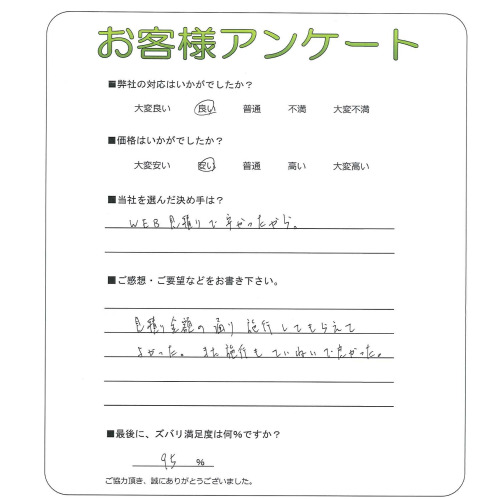 お客様アンケート
■弊社の対応はいかがでしたか?
大変良い 良い 普通 不満 大変不満
■価格はいかがでしたか?
大変安い 安い 普通 高い 大変高い
■当社を選んだ決め手は?
WEB見積りで安かったから。
■ご感想・ご要望などをお書き下さい。
見積り金額の通り施行してもらえて
よかった。また施行もていねいで良かった。
■最後に、ズバリ満足度は何%ですか?
95 %
ご協力頂き、誠にありがとうございました。